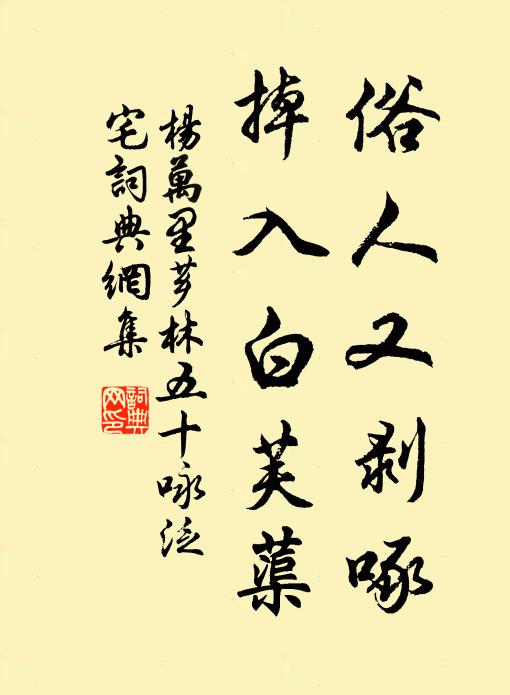 俗人又剥啄
掉入白芙蕖
楊萬里芗林五十咏泛
宅詞典網集
詞典网印